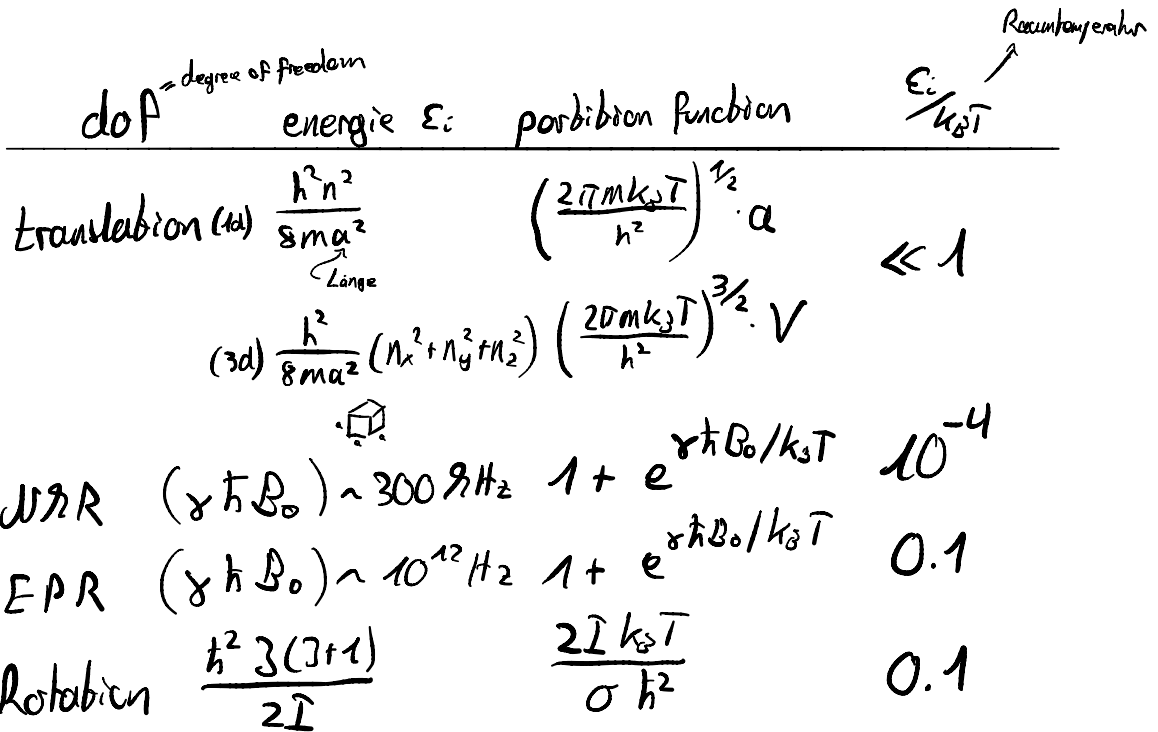 Raumtemperatur
dof = degree of freedom energie εᵢ partition function εᵢ/k_BT
translation (1d) h²n²/8ma² (2πmk_BT/h²)^1/2 · a ≪ 1
Länge
(3d) h²/8ma² (n_x²+n_y²+n_z²) (2πmk_BT/h²)^3/2 · V
NMR (γħB₀) ~ 300 MHz 1 + e^γħB₀/k_BT 10⁻⁴
EPR (γħB₀) ~ 10¹² Hz 1 + e^γħB₀/k_BT 0.1
Rotation ħ² J(J+1)/2I 2Ik_BT/σħ² 0.1